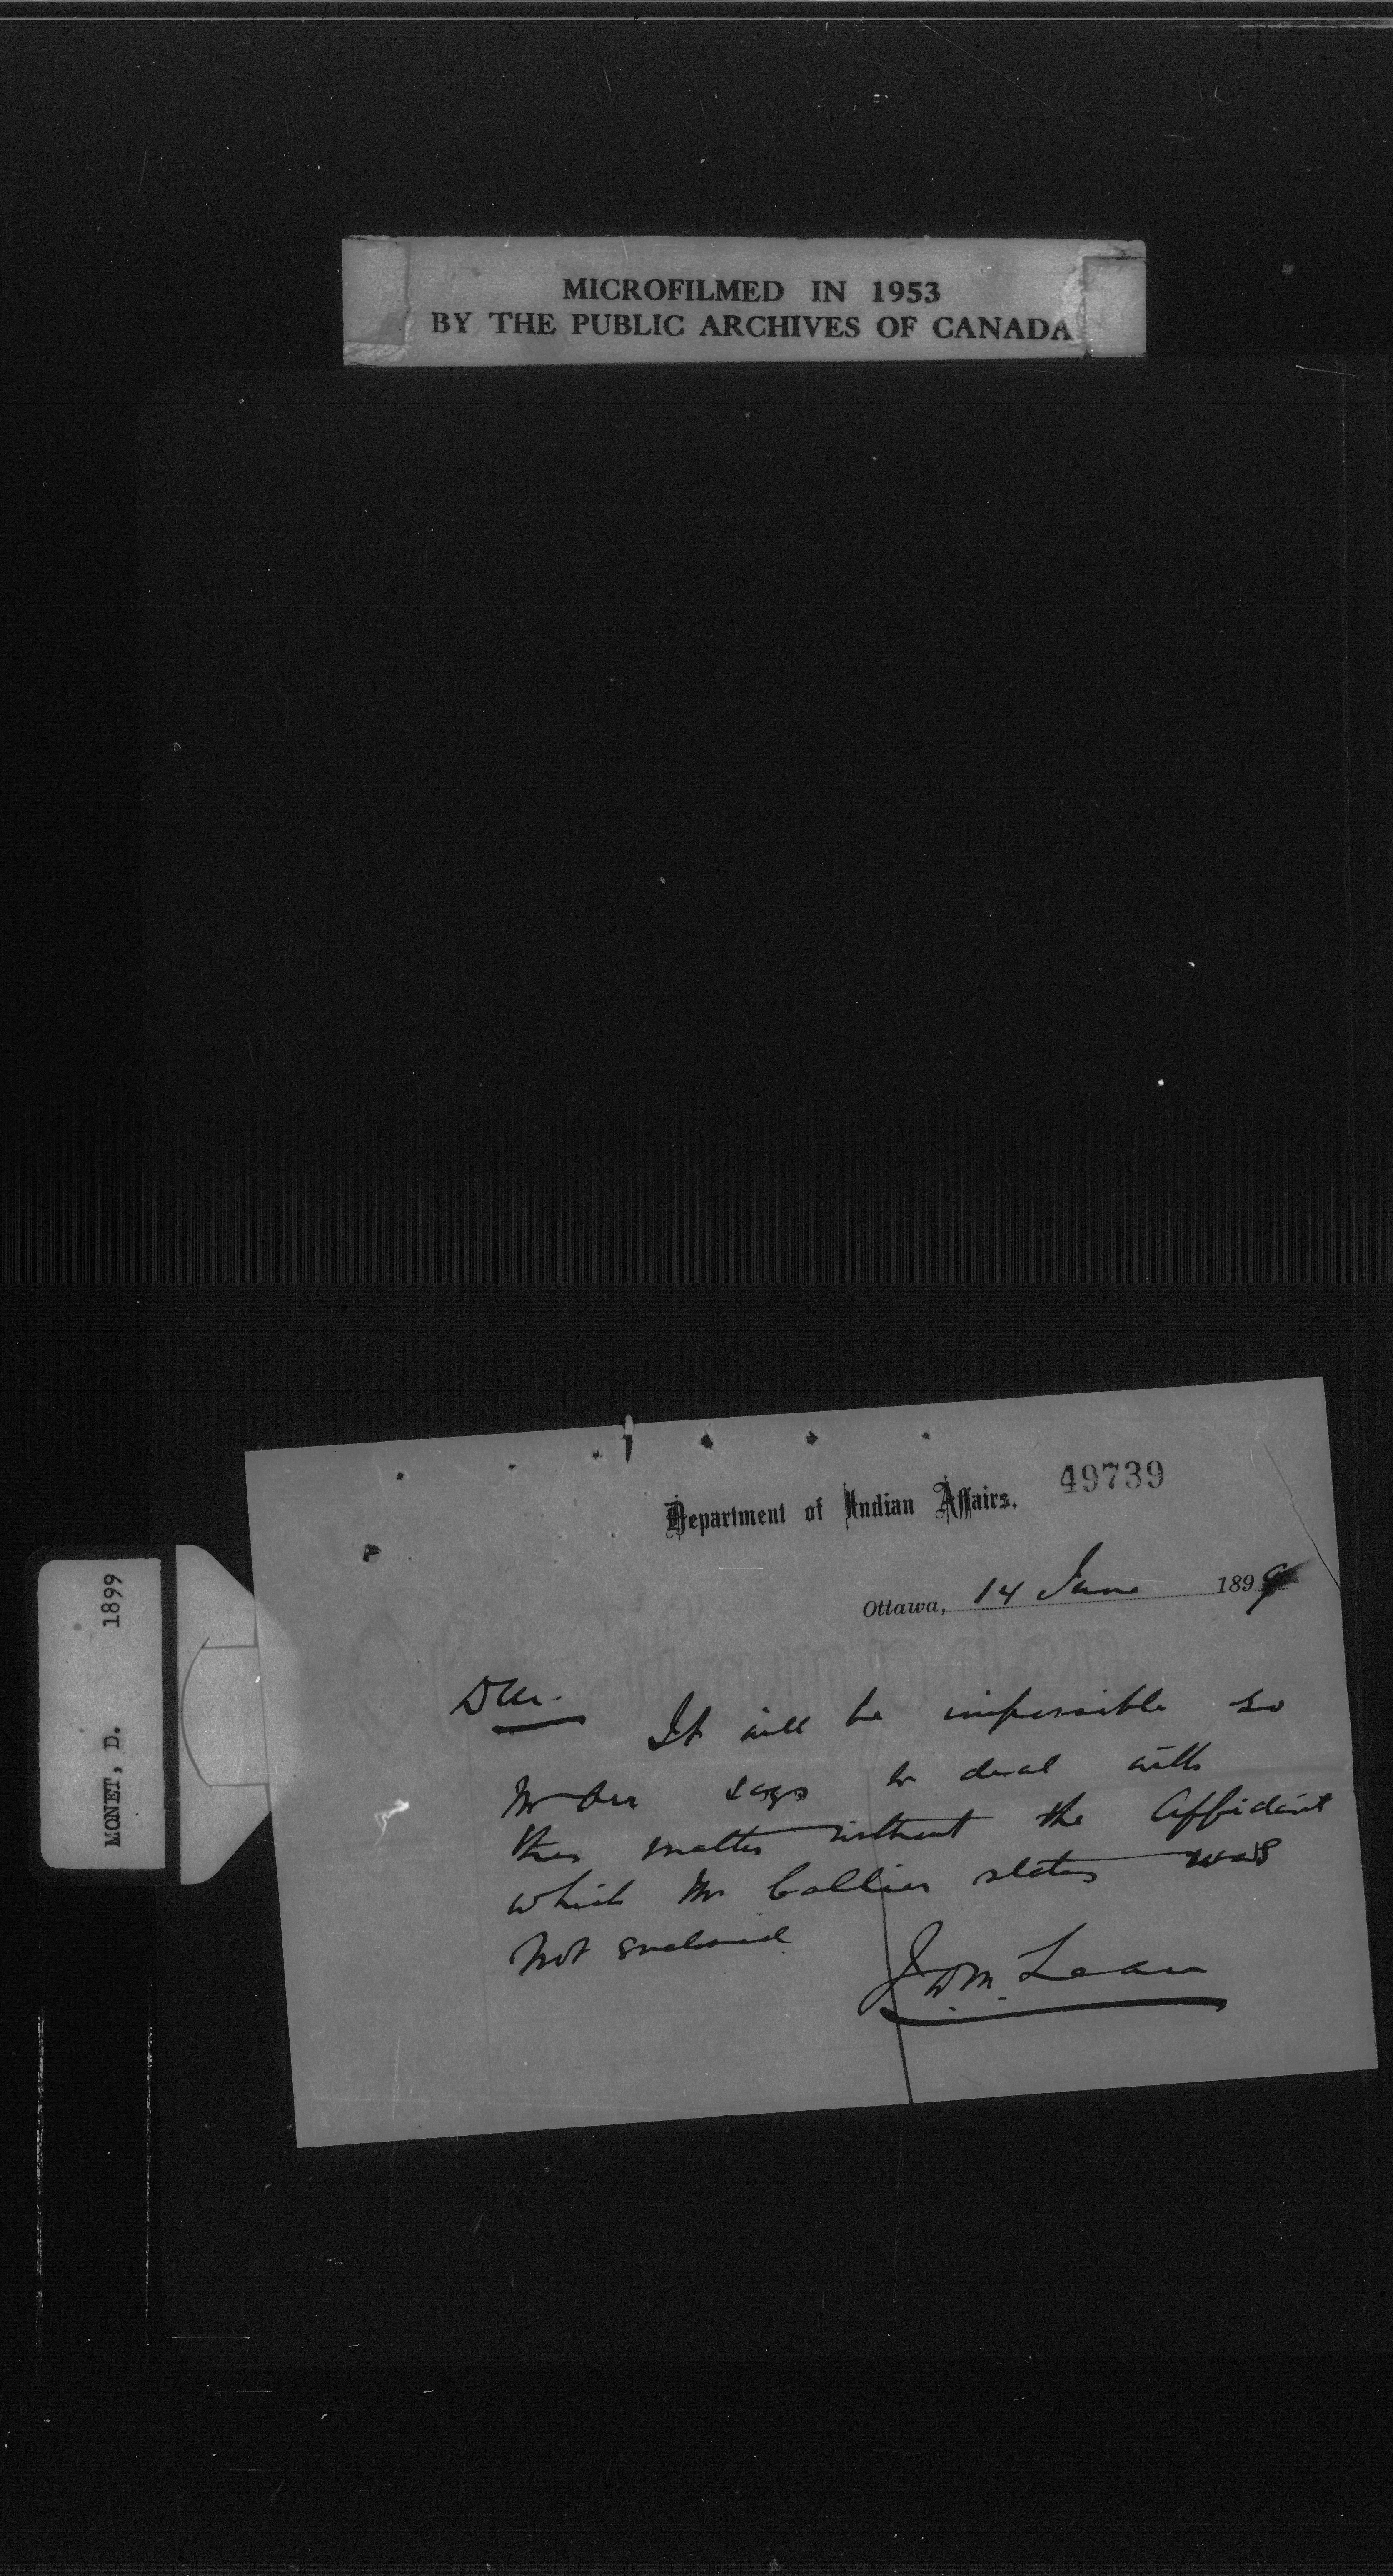 MICROFILMED IN 1953
BY THE PUBLIC ARCHIVES OF CANADA
MONET, D. 1899
49739
Department of Indian Affairs.
Ottawa, 14 June 1899
It will be impossible so
Mr Orr says to deal with
this matter without the Affidavit
which Mr Collier states was
not enclosed
J.D.McLean